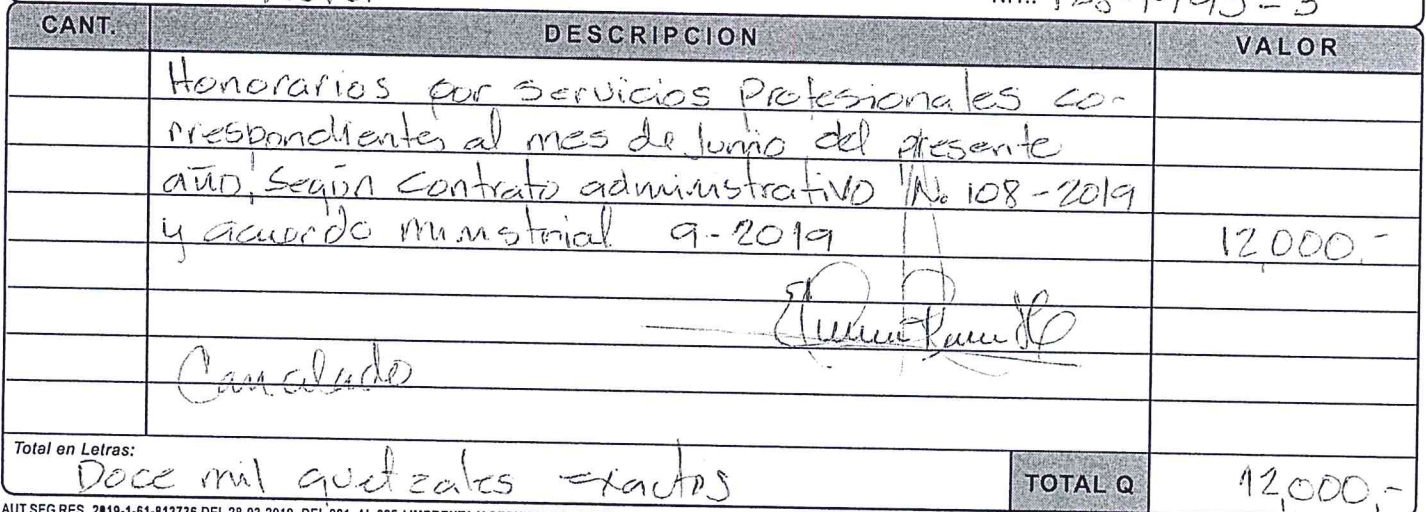 CANT. DESCRIPCION VALOR
Honorarios por Servicios Profesionales co-
rrespondientes al mes de Junio del presente
año, Según Contrato administrativo No 108-2019
y acuerdo ministrial 9-2019 12,000.-
Cancelado
Total en Letras:
Doce mil quetzales exactos TOTAL Q 12,000,-